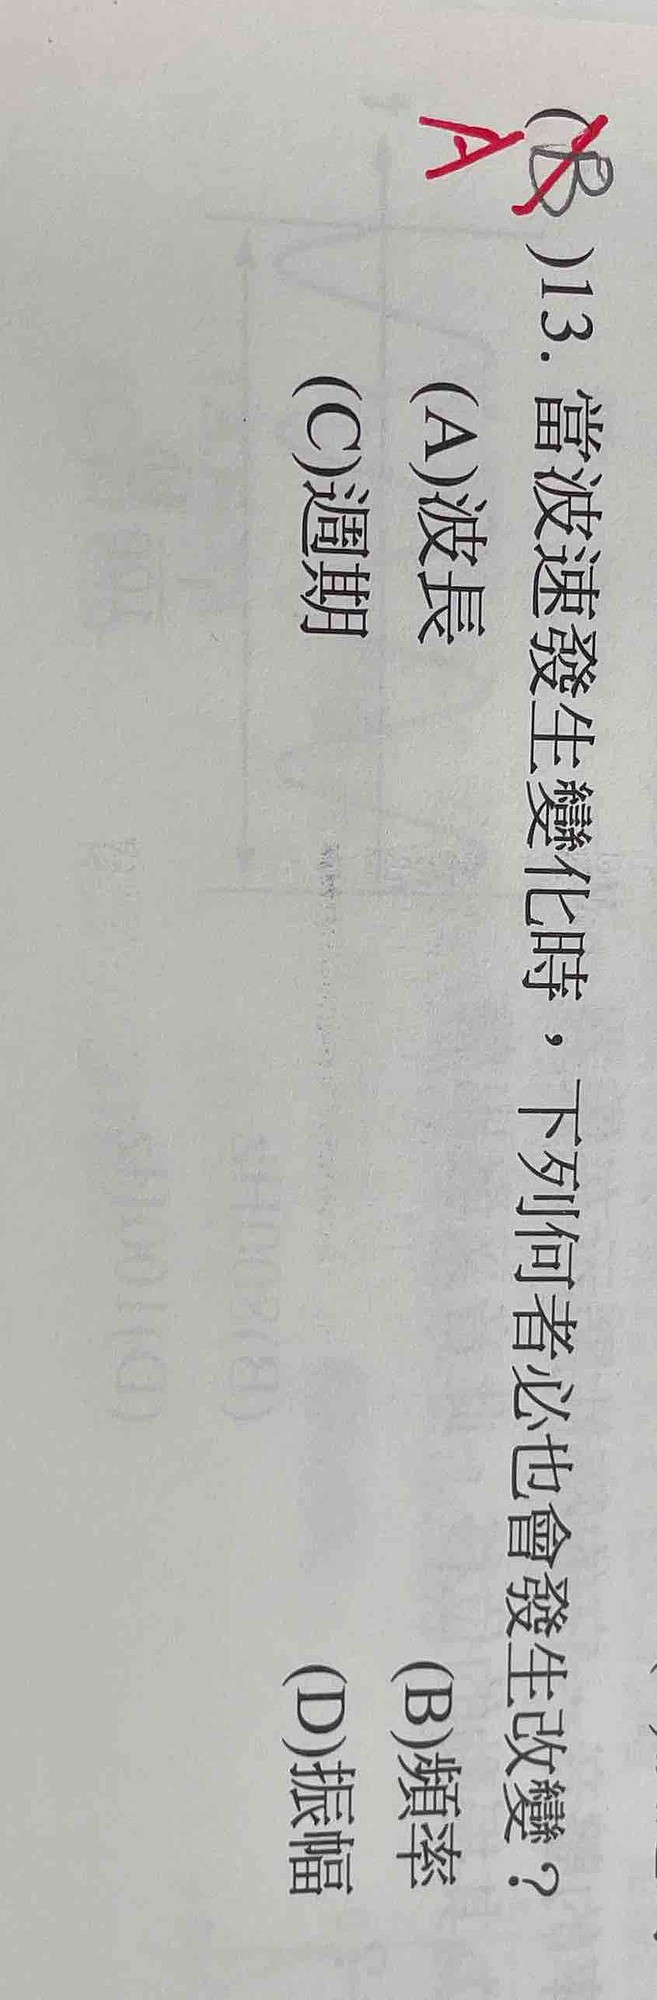 (B)13. 當波速發生變化時，下列何者必也會發生改變？
A
(A)波長 (B)頻率
(C)週期 (D)振幅